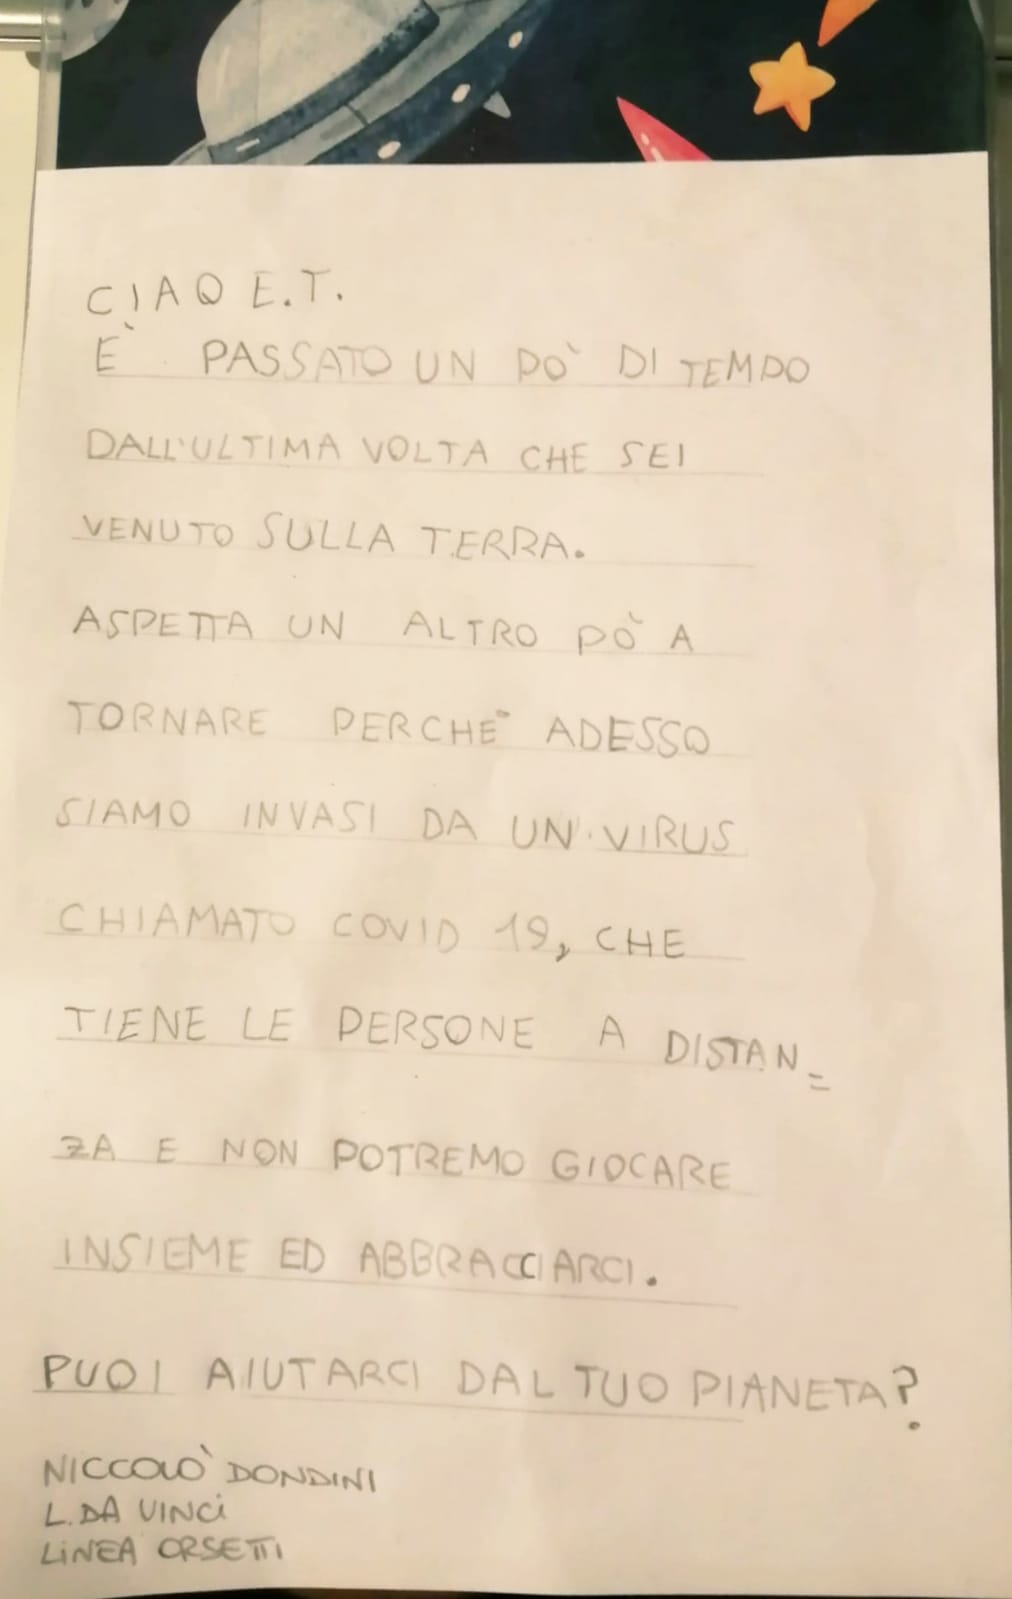 CIAO E.T.
È PASSATO UN PÒ DI TEMPO
DALL'ULTIMA VOLTA CHE SEI
VENUTO SULLA TERRA.
ASPETTA UN ALTRO PÒ A
TORNARE PERCHÈ ADESSO
SIAMO INVASI DA UN VIRUS
CHIAMATO COVID 19, CHE
TIENE LE PERSONE A DISTAN=
ZA E NON POTREMO GIOCARE
INSIEME ED ABBRACCIARCI.
PUOI AIUTARCI DAL TUO PIANETA?
NICCOLÒ DONDINI
L. DA VINCI
LINEA ORSETTI